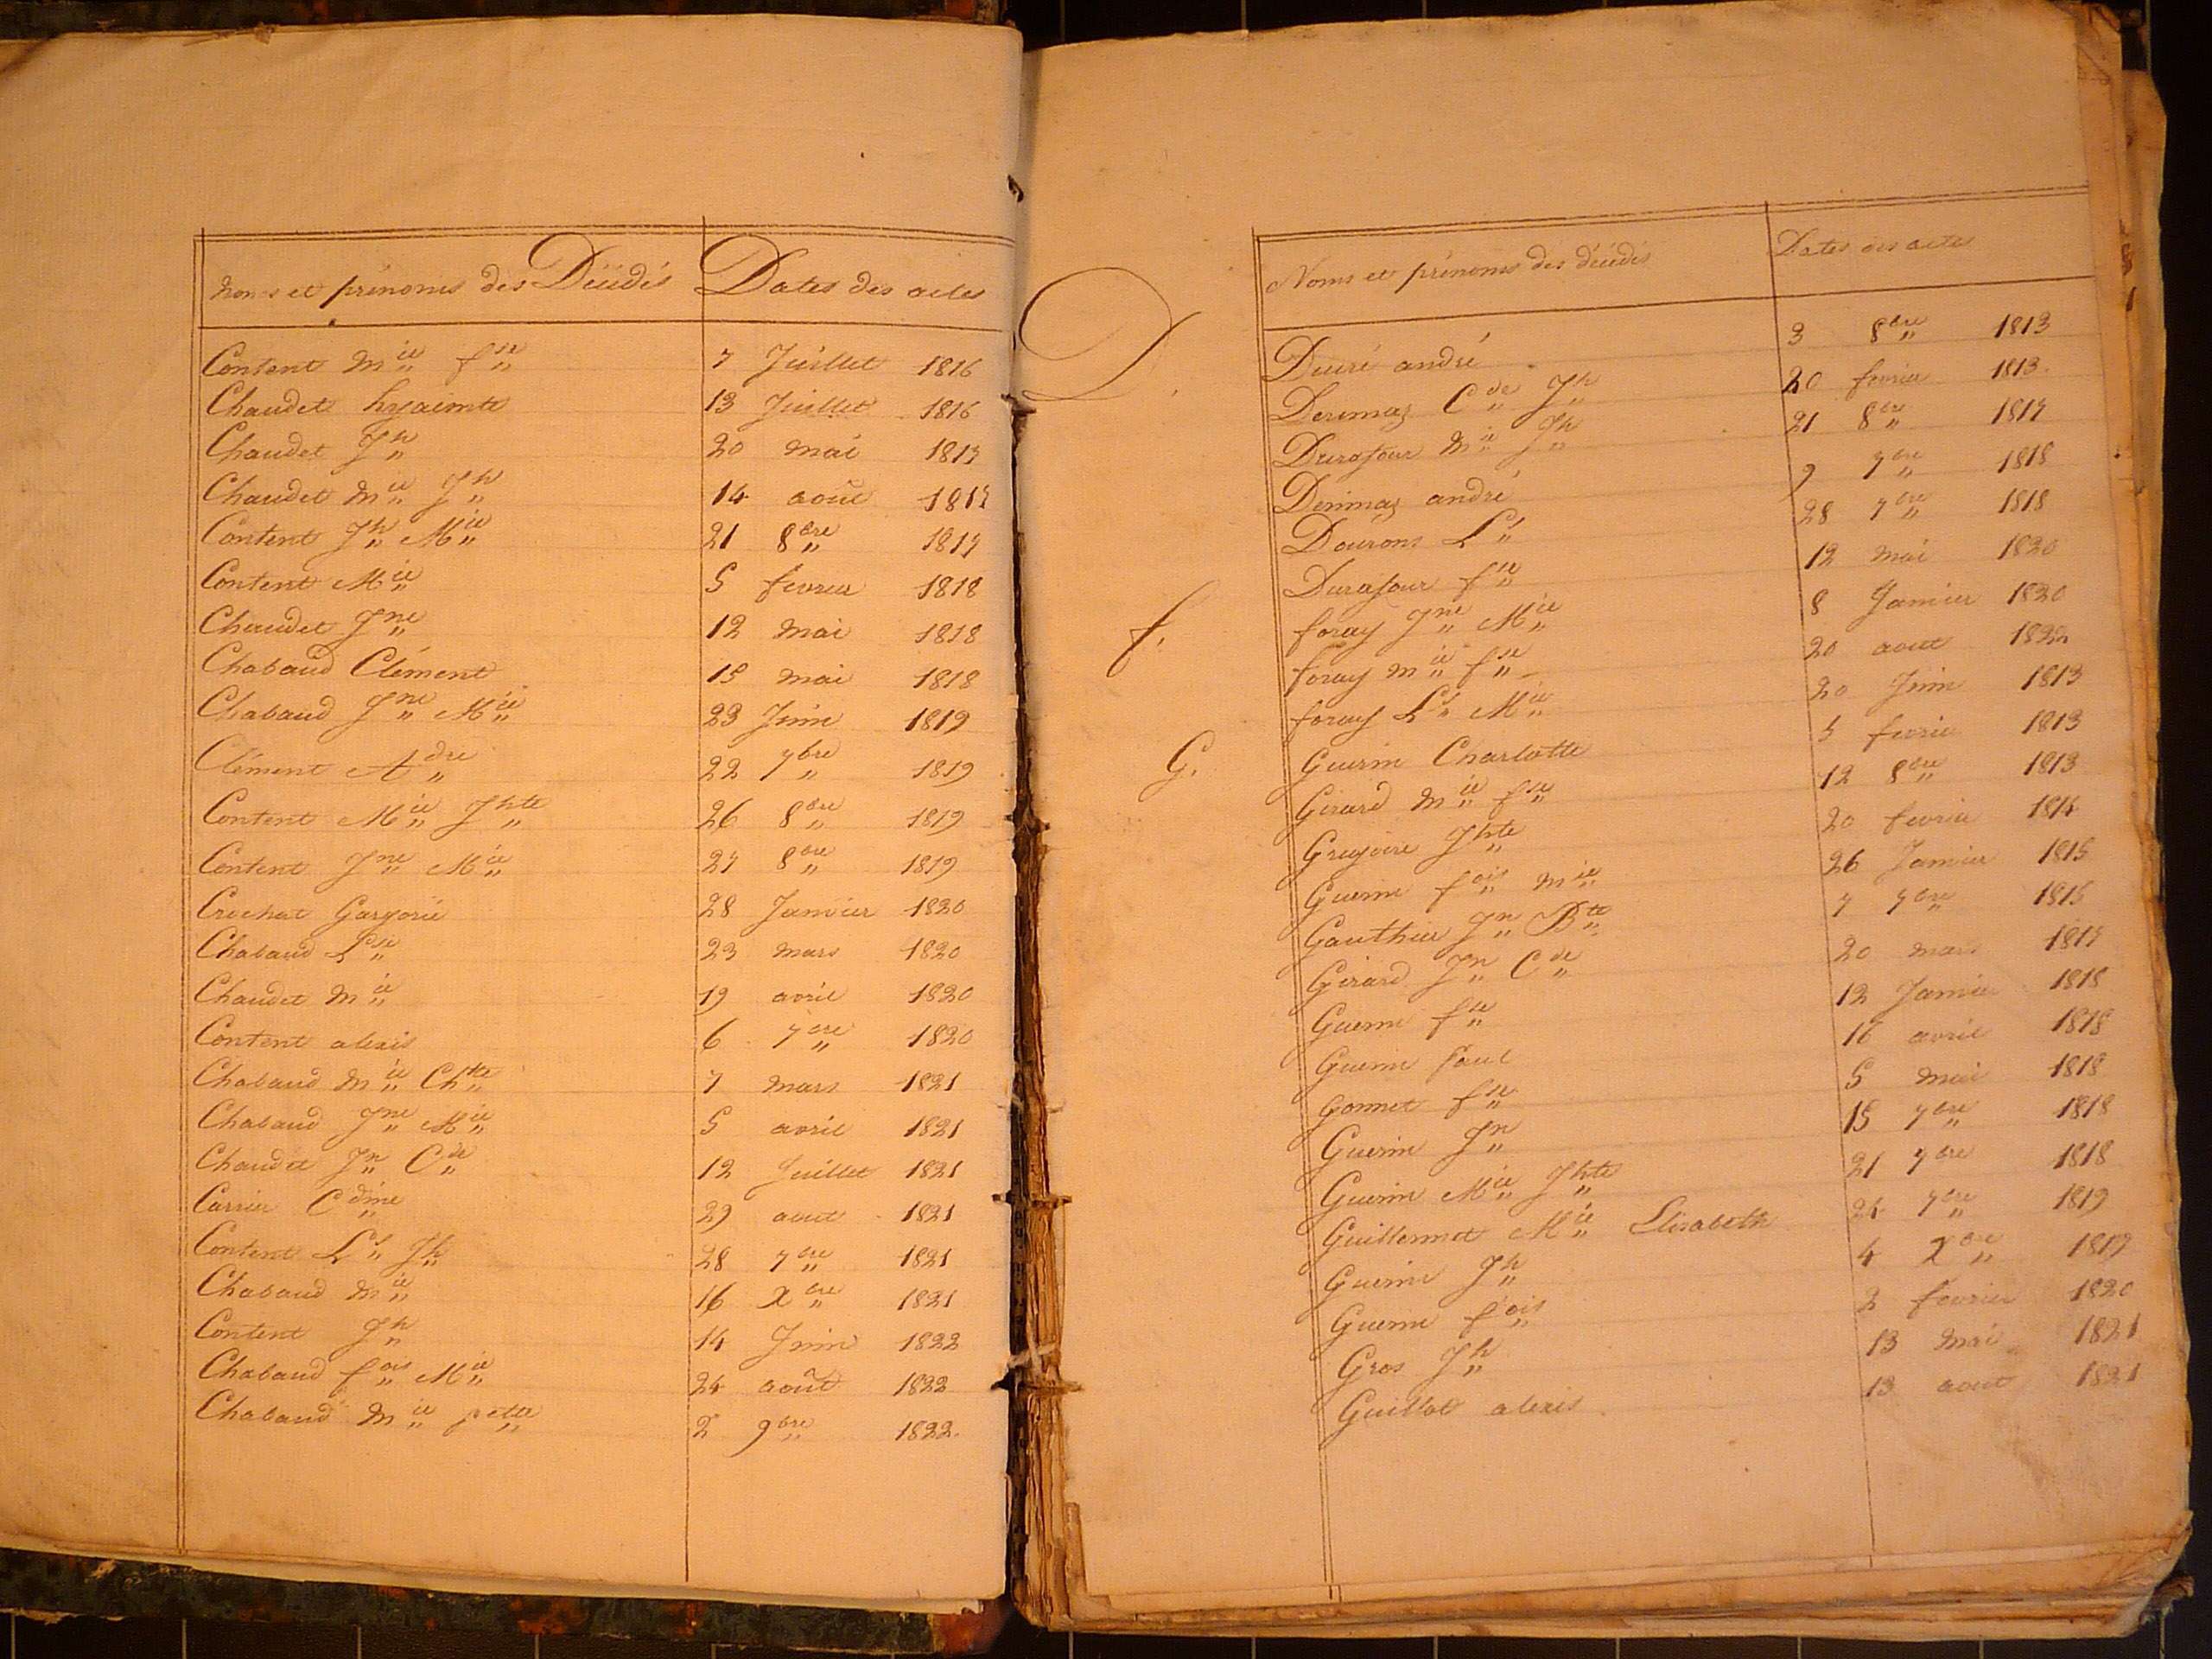 Noms et prénoms des Décédés Dates des actes
Content Mie fse 7 Juillet 1816
Chaudet hyacinte 13 Juillet 1816
Chaudet Jh 20 mai 1817
Chaudet Mie Jh 14 août 1817
Content Jh Mie 21 8bre 1817
Content Mie 5 fevrier 1818
Chaudet Jne 12 mai 1818
Chabaud Clément 15 mai 1818
Chabaud Jne Mie 23 Juin 1819
Clément Adre 22 7bre 1819
Content Mie Jhte 26 8bre 1819
Content Jne Mie 27 8bre 1819
Crochat 28 Janvier 1820
Chabaud Lse 23 mars 1820
Chaudet Mie 19 avril 1820
Content alexis 6 7bre 1820
Chabaud Mie Chtte 7 mars 1821
Chabaud Jne Mie 5 avril 1821
Chaudet Jn Cde 12 Juillet 1821
Carrier Cdine 29 aout 1821
Content Ls Jh 28 7bre 1821
Chabaud Mie 16 Xbre 1821
Content Jh 14 Juin 1822
Chabaud fois Mie 24 août 1822
Chabaud Mie pette 2 9bre 1822.
Noms et prénoms des décédés Dates des actes
D.
Ducré andré 3 8bre 1813
Derimaz Cde Jh 20 fevrier 1813.
Durafour Mie Jh 21 8bre 1817
Derimaz andré 9 7bre 1818
Dourons Ls 28 7bre 1818
Durafour fse 12 mai 1820
f.
foray Jne Mie 8 Janvier 1820
foray Mie fse 20 aout 1822
foray Ls Mie 20 Juin 1813
G.
Guerin Charlotte 5 fevrier 1813
Girard Mie fse 12 8bre 1813
Gregoire Jhte 20 fevrier 1814
Guerin fois Mie 26 Janvier 1815
Gauthier Jn Bte 7 7bre 1815
Girard Jn Cde 20 mars 1817
Guerin fse 12 Janvier 1818
Guerin Paul 16 avril 1818
Gonnet fse 5 mai 1818
Guerin Jn 15 7bre 1818
Guerin Mie Jhte 21 7bre 1818
Guillermet Mie Elisabeth 24 7bre 1819
Guerin Jh 4 Xbre 1819
Guerin fois 2 fevrier 1820
Gros Jh 13 mai 1821
Guillot alexis 13 aout 1821